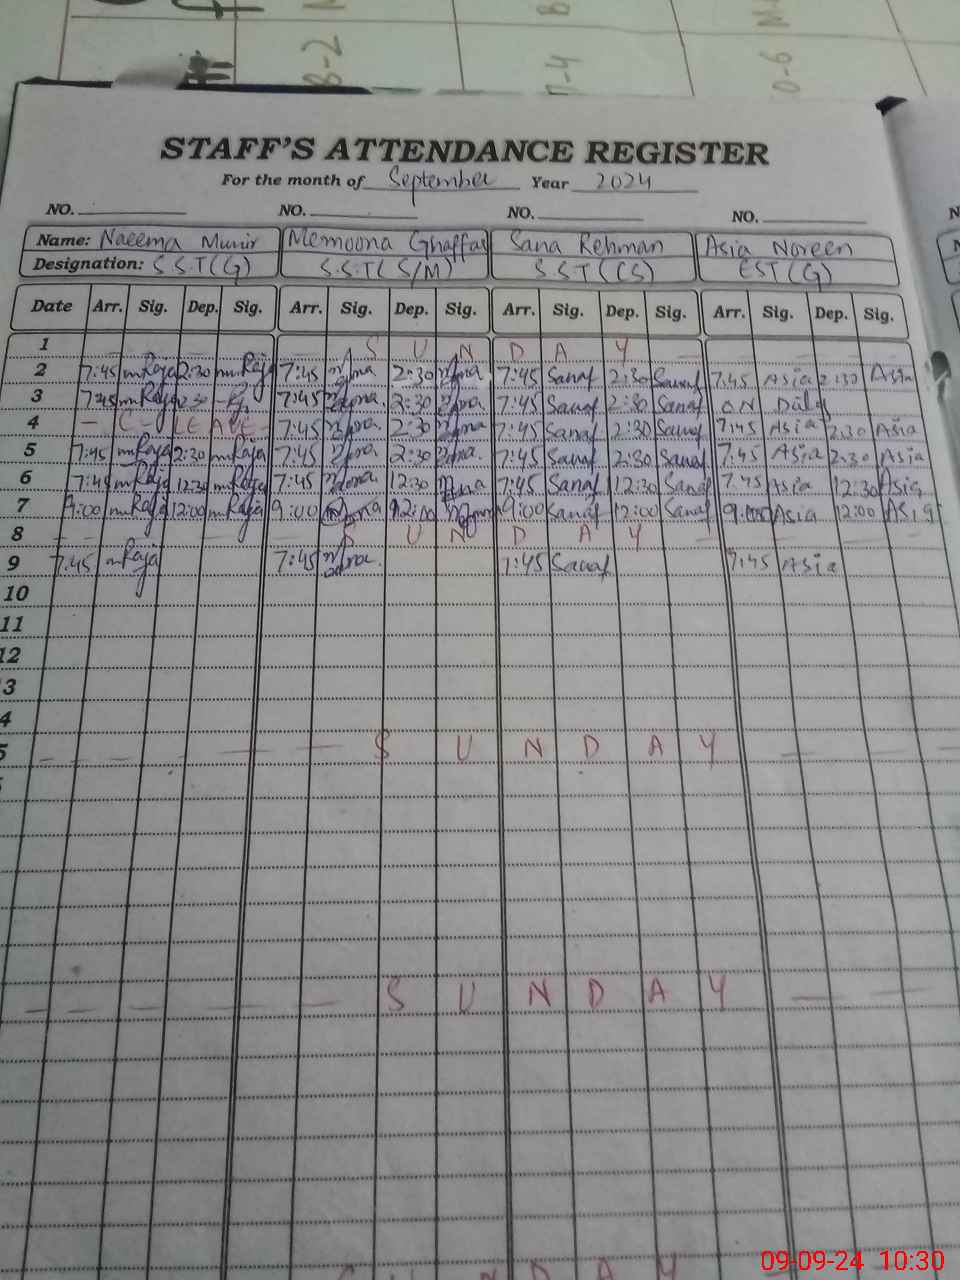 8-2 7-4 8 0-6
STAFF'S ATTENDANCE REGISTER
For the month of September Year 2024
NO. NO. NO. NO.
Name: Naeema Munir Memoona Ghaffar Sana Rehman Asia Noreen
Designation: S.S.T(G) S.S.T(S/M) S.S.T(CS) EST(G)
Date Arr. Sig. Dep. Sig. Arr. Sig. Dep. Sig. Arr. Sig. Dep. Sig. Arr. Sig. Dep. Sig.
1 S U N D A Y
2 7:45 mRaja 2:30 mRaja 7:45 2:30 7:45 Sanaf 2:30 Sanaf 7:45 Asia 2:30 Asia
3 7:45 mRaja 2:30 7:45 2:30 7:45 Sanaf 2:30 Sanaf ON Duty
4 - C - LEAVE - 7:45 2:30 7:45 Sanaf 2:30 Sanaf 7:45 Asia 2:30 Asia
5 7:45 mRaja 2:30 mRaja 7:45 2:30 7:45 Sanaf 2:30 Sanaf 7:45 Asia 2:30 Asia
6 7:45 mRaja 12:30 mRaja 7:45 12:30 7:45 Sanaf 12:30 Sanaf 7:45 Asia 12:30 Asia
7 9:00 mRaja 12:00 mRaja 9:00 12:00 9:00 Sanaf 12:00 Sanaf 9:00 Asia 12:00 Asia
8 S U N D A Y
9 7:45 mRaja 7:45 7:45 Sanaf 7:45 Asia
10
11
12
3
4
5 S U N D A Y
S U N D A Y
S U N D A Y
09-09-24 10:30